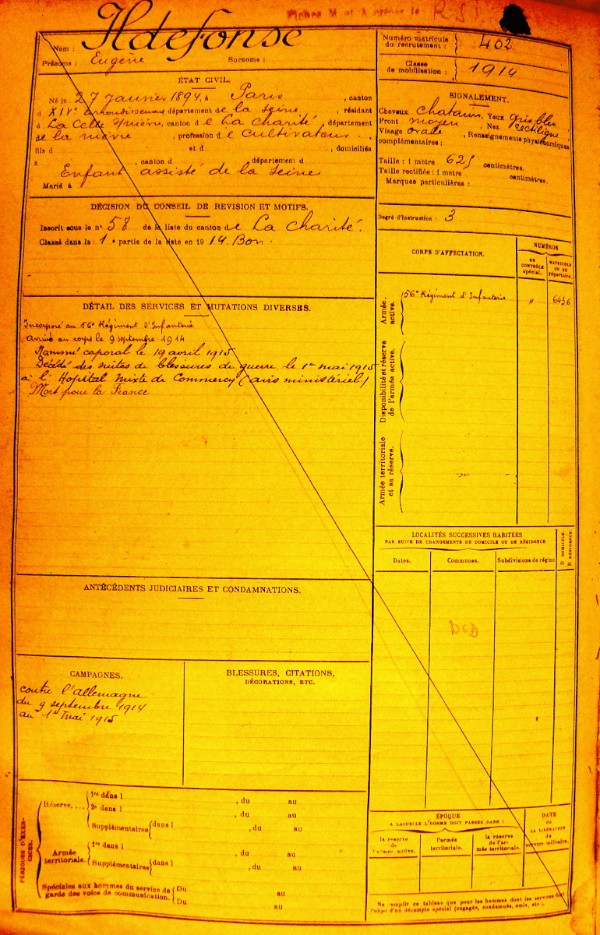 R.S.
Nom : Ildefonse
Prénoms : Eugène Surnome :
Numéro matricule du recrutement : 402
Classe de mobilisation : 1914
ÉTAT CIVIL.
Né le 27 janvier 1894, à Paris, canton
d XIVe arrondissement, département de la Seine, résidant
à La Celle s/ Nièvre, canton de La Charité, département
de la Nièvre, profession de Cultivateur
fils d et d , domiciliés
à canton d département d
Enfant assisté de la Seine
Marié à
SIGNALEMENT.
Cheveux chatains, Yeux gris bleu
Front moyen, Nez rectiligne
Visage ovale, Renseignements physionomiques
complémentaires :
Taille : 1 mètre 625 centimètres.
Taille rectifiée : 1 mètre centimètres.
Marques particulières :
Degré d'instruction : 3
DÉCISION DU CONSEIL DE REVISION ET MOTIFS.
Inscrit sous le n° 58 de la liste du canton de La Charité.
Classé dans la 1e partie de la liste en 1914. Bon.
CORPS D'AFFECTATION.
NUMÉROS
AU CONTRÔLE spécial.
MATRICULE OU DU RÉPERTOIRE.
Armée active.
56e Régiment d'Infanterie " 6436
Disponibilité et réserve de l'armée active.
Armée territoriale et sa réserve.
DÉTAIL DES SERVICES ET MUTATIONS DIVERSES.
Incorporé au 56e Régiment d'Infanterie
arrivé au corps le 9 septembre 1914
Nommé caporal le 19 avril 1915
Décédé des suites de blessures de guerre le 1er mai 1915
à l'Hopital mixte de Commercy (avis ministériel)
Mort pour la France
LOCALITÉS SUCCESSIVES HABITÉES
PAR SUITE DE CHANGEMENTS DE DOMICILE OU DE RÉSIDENCE
Dates. Communes. Subdivisions de région
D DOMICILE R RÉSIDENCE
ANTÉCÉDENTS JUDICIAIRES ET CONDAMNATIONS.
CAMPAGNES.
contre l'Allemagne
du 9 septembre 1914
au 1er mai 1915
BLESSURES, CITATIONS,
DÉCORATIONS, ETC.
PÉRIODES D'EXERCICES.
Réserve.... 1re dans l , du au
2e dans l , du au
Supplémentaires dans l , du au
Armée territoriale. 1re dans l , du au
Supplémentaires dans l , du au
Spéciales aux hommes du service de garde des voies de communication. Du au
Du au
ÉPOQUE
A LAQUELLE L'HOMME DOIT PASSER DANS :
la réserve de l'armée active.
l'armée territoriale.
la réserve de l'armée territoriale.
DATE de LA LIBÉRATION du service militaire.
Ne remplir ce tableau que pour les hommes dont les services font
l'objet d'un décompte spécial (engagés, condamnés, omis, etc.)